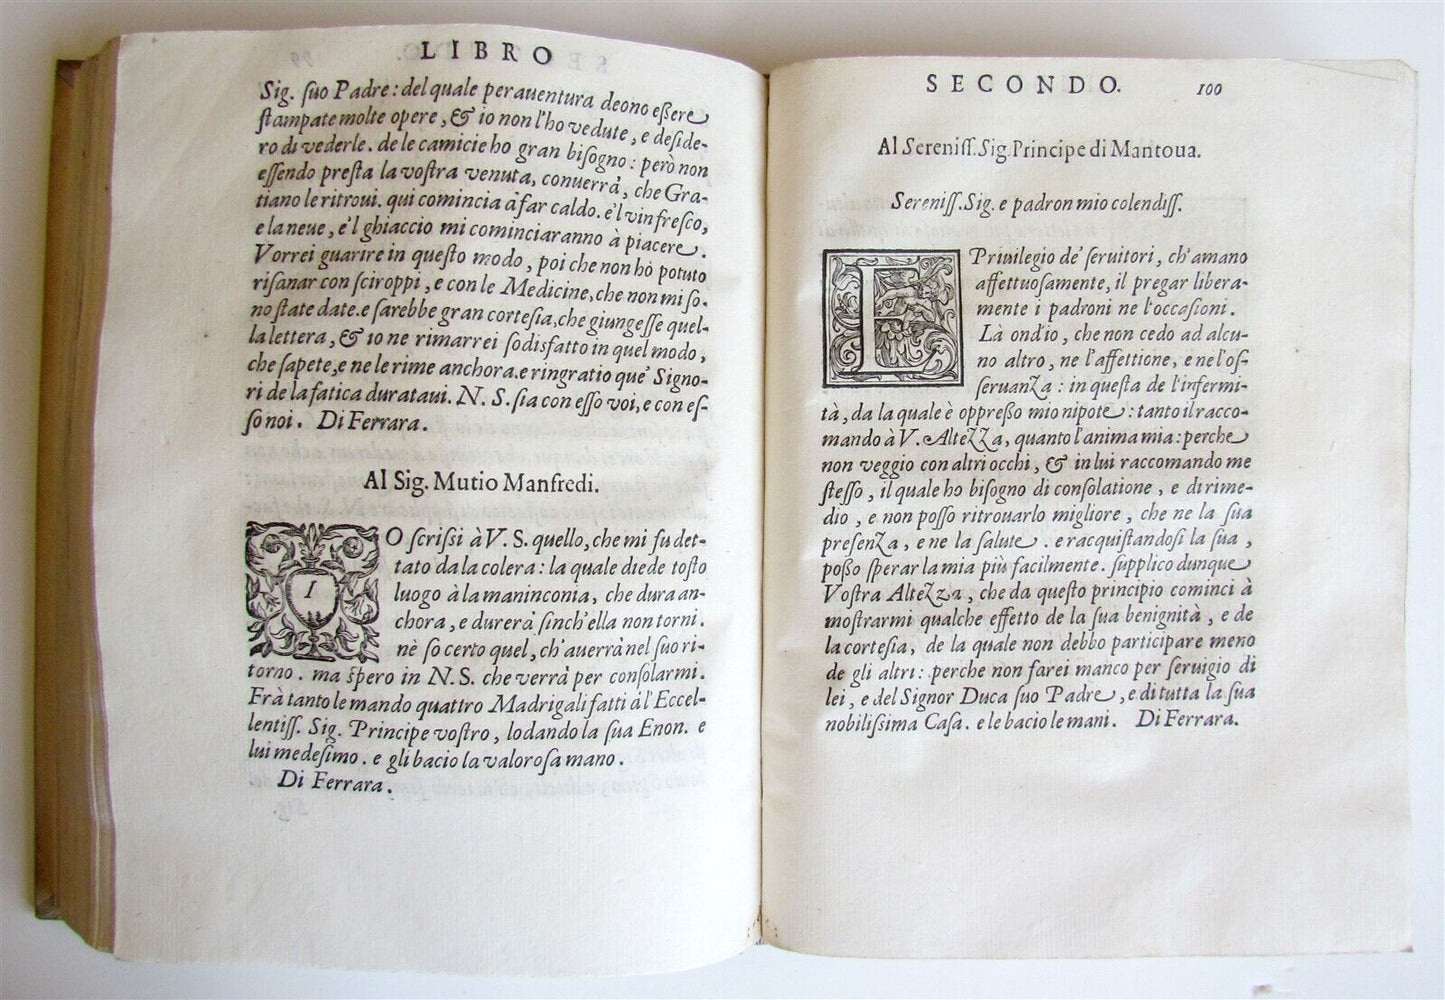 LIBRO
Sig. ſuo Padre: del quale perauentura deono eßere
ſtampate molte opere, & io non l'ho vedute, e deſide-
ro di vederle. de le camicie ho gran biſogno: però non
eſſendo preſta la voſtra venuta, conuerrà, che Gra-
tiano le ritroui. qui comincia à far caldo. e'l vin freſco,
e la neue, e'l ghiaccio mi cominciaranno à piacere.
Vorrei guarire in queſto modo, poi che non hò potuto
riſanar con ſciroppi, e con le Medicine, che non mi ſo-
no ſtate date. e ſarebbe gran corteſia, che giungeſſe quel-
la lettera, & io ne rimarrei ſodisfatto in quel modo,
che ſapete, e ne le rime anchora. e ringratio que' Signo-
ri de la fatica durataui. N. S. ſia con eſſo voi, e con eſ-
ſo noi. Di Ferrara.
Al Sig. Mutio Manfredi.
IO ſcriſsi à V. S. quello, che mi fu det-
tato da la colera: la quale diede toſto
luogo à la maninconia, che dura an-
chora, e durerà ſinch'ella non torni.
nè ſo certo quel, ch'auerrà nel ſuo ri-
torno. ma ſpero in N. S. che verrà per conſolarmi.
Frà tanto le mando quattro Madrigali fatti à l'Eccel-
lentiſſ. Sig. Principe voſtro, lodando la ſua Enon. e
lui medeſimo. e gli bacio la valoroſa mano.
Di Ferrara.
SECONDO. 100
Al Sereniſſ. Sig. Principe di Mantoua.
Sereniſſ. Sig. e padron mio colendiſſ.
E Priuilegio de' ſeruitori, ch'amano
affettuoſamente, il pregar libera-
mente i padroni ne l'occaſioni.
Là ond'io, che non cedo ad alcu-
no altro, ne l'affettione, e ne l'oſ-
ſeruanza: in queſta de l'infermi-
tà, da la quale è oppreßo mio nipote: tanto il racco-
mando à V. Altezza, quanto l'anima mia: perche
non veggio con altri occhi, & in lui raccomando me
ſteſſo, il quale ho biſogno di conſolatione, e di rime-
dio, e non poſſo ritrouarlo migliore, che ne la ſua
preſenza, e ne la ſalute. e racquiſtandoſi la ſua,
poßo ſperar la mia più facilmente. ſupplico dunque
Voſtra Altezza, che da queſto principio cominci à
moſtrarmi qualche effetto de la ſua benignità, e de
la corteſia, de la quale non debbo participare meno
de gli altri: perche non farei manco per ſeruigio di
lei, e del Signor Duca ſuo Padre, e di tutta la ſua
nobiliſsima Caſa. e le bacio le mani. Di Ferrara.